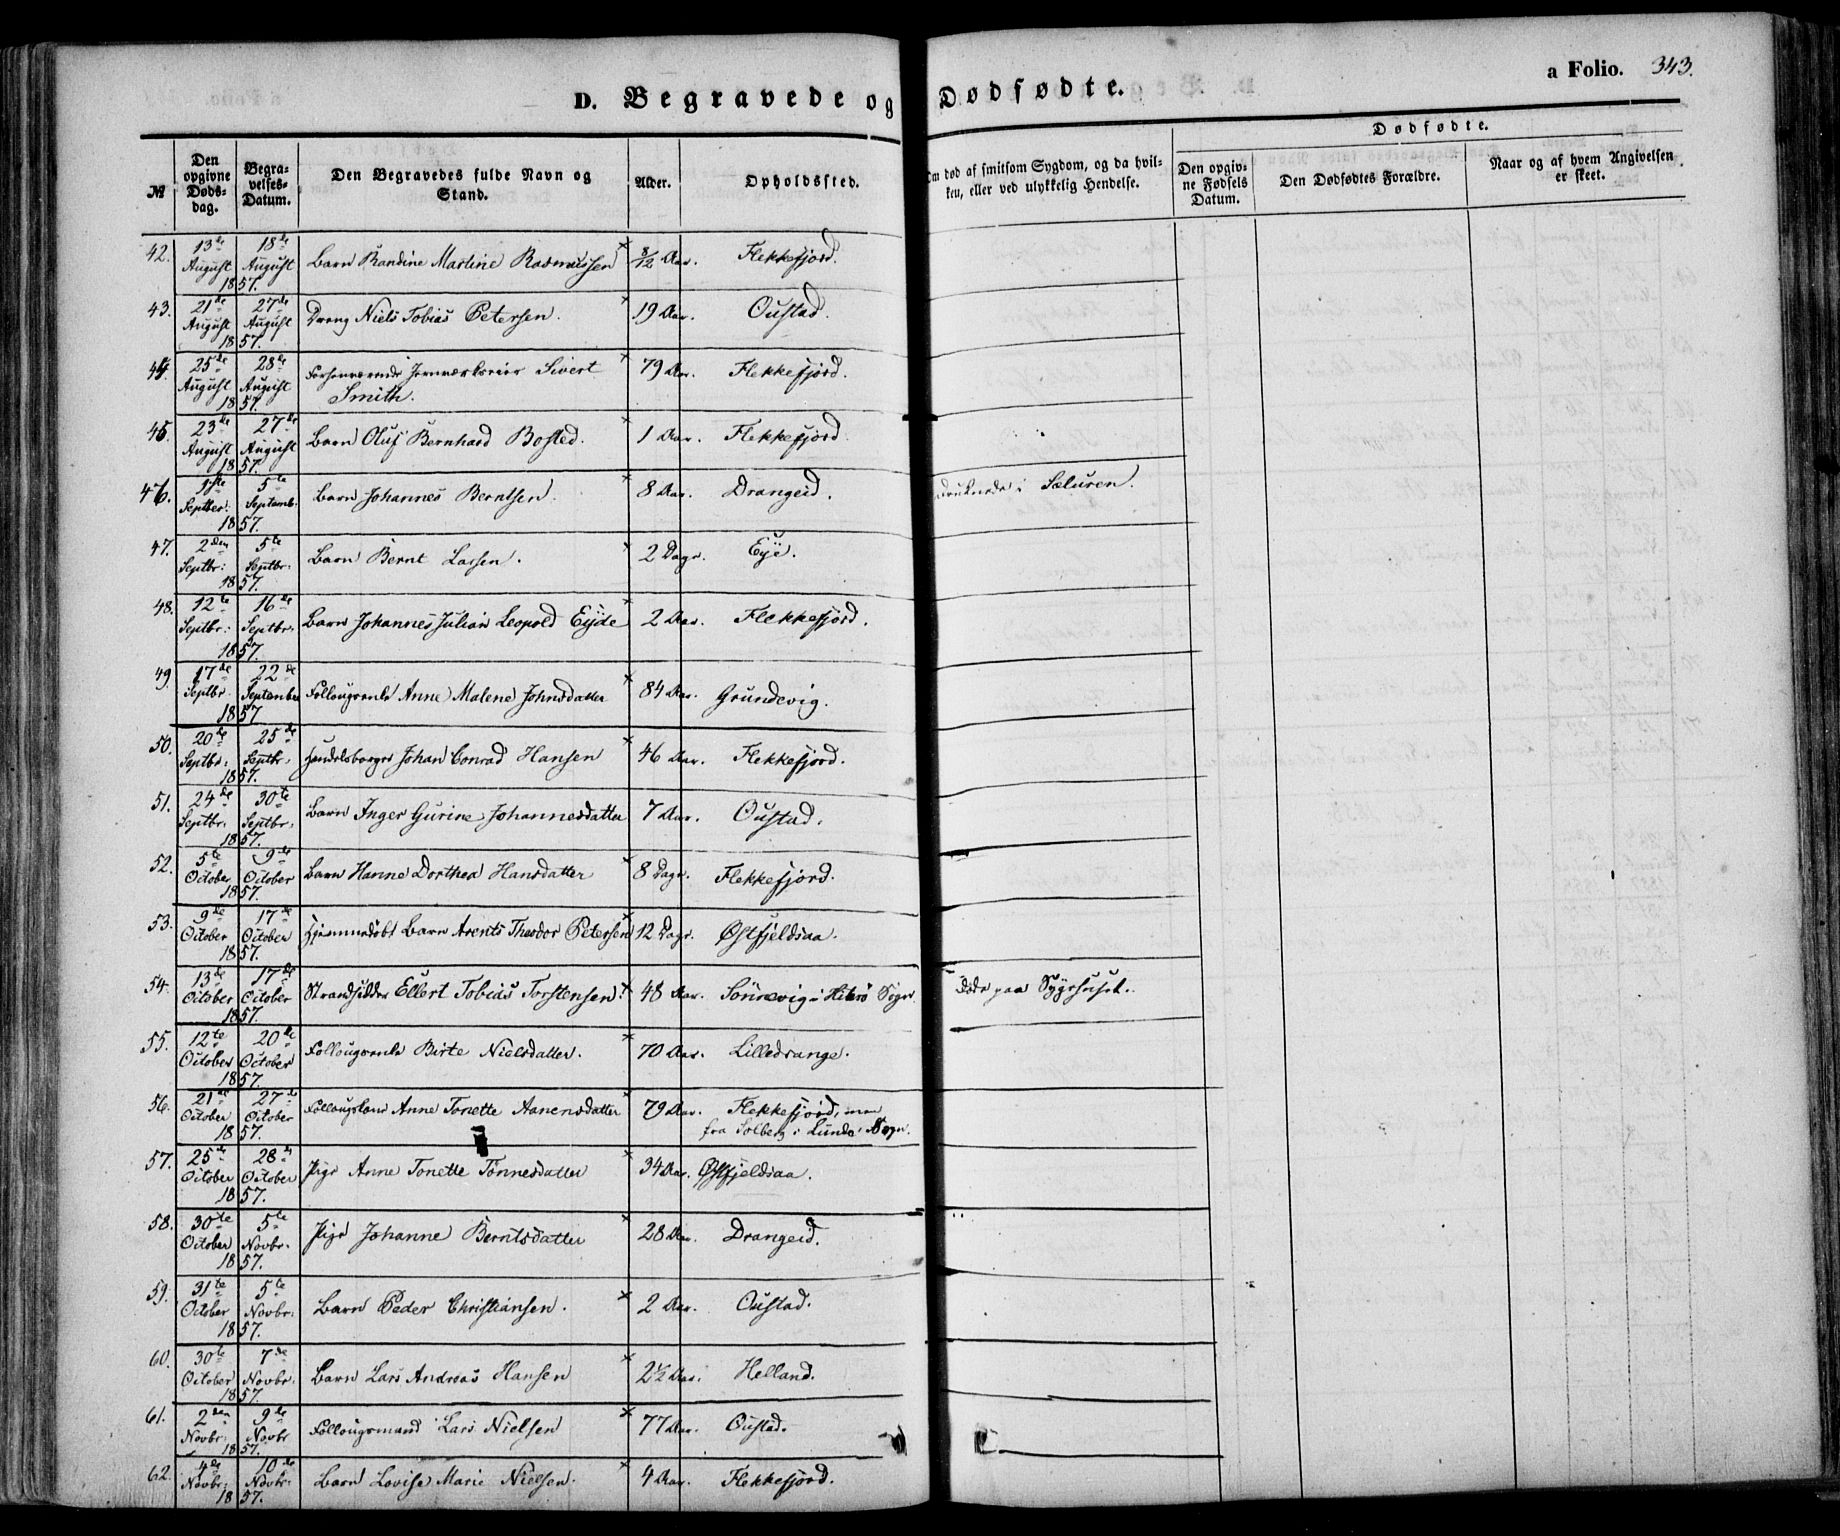 a Folio. 343.
D. Begravede og Dødfødte.
№
Den opgivne Døds-dag.
Begra-velses-Datum.
Den Begravedes fulde Navn og Stand.
Alder.
Opholdssted.
Om død af smitsom Sygdom, og da hvil-ken, eller ved ulykkelig Hendelse.
Dødfødte.
Den opgiv-ne Fødsels Datum.
Den Dødfødtes Forældre.
Naar og af hvem Angivelsen er skeet.
42. 13de August 18de August 1857. Barn Randine Martine Rasmussen × 8/12 Aar. Flekkefjord.
43. 21de August 27de August 1857. Dreng Niels Tobias Petersen. × 19 Aar. Oustad.
44. 25de August 28de August 1857. Forhenværende Jernværkseier Sivert Smith. × 79 Aar. Flekkefjord.
45. 23de August 27de August 1857. Barn Oluf Bernhard Bosted. × 1 Aar. Flekkefjord.
46. 1ste Septber: 5te Septemb. 1857. Barn Johannes Berntsen. × 8 Aar. Drangeid. druknede i Sæluren.
47. 2den Septbr: 5te Septbr: 1857. Barn Bernt Larsen. × 2 Dage. Eye.
48. 12te Septbr: 16de Septbr: 1857. Barn Johannes Julian Leopold Eyde × 2 Aar. Flekkefjord.
49. 17de Septbr. 22de September 1857 Follougsenke Anne Malene Johnsdatter × 84 Aar. Grundevig.
50. 20de Septbr: 25de Septbr: 1857. Handelsborger Johan Conrad Hansen × 46 Aar. Flekkefjord.
51. 24de Septbr: 30te Septbr: 1857. Barn Inger Gurine Johannesdatter 7 Aar. Oustad.
52. 5te October 9de October 1857. Barn Hanne Dorthea Hansdatter × 8 Dage. Flekkefjord.
53. 9de October 17de October 1857. Hjemmedøbt Barn Arents Theodor Petersen × 12 Dage. Østfjeldsaa.
54. 13de October 17de October 1857. Strandsidder Ellert Tobias Torstensen. × 48 Aar. Sönnevig i Hitterö Sogn. döde paa Sygehuset.
55. 12te October 20de October 1857. Follougsenke Birte Nielsdatter. × 70 Aar. Lilledrange.
56. 21de October 27de October 1857. Follougskone Anne Tonette Aanensdatter × 79 Aar. Flekkefjord, men fra Solberg i Lunde Sogn.
57. 25de October 28de October 1857. Pige Anne Tonette Tönnesdatter × 34 Aar. Østfjeldsaa.
58. 30te October 5te Novbr. 1857. Pige Johanne Berntsdatter × 28 Aar. Drangeid.
59. 31te October 5te Novbr: 1857. Barn Peder Christiansen. × 2 Aar. Oustad.
60. 30te October 7de Novbr: 1857. Barn Lars Andreas Hansen × 2½ Aar. Helland.
61. 2den Novbr: 9de Novbr 1857. Follougsmand Lars Nielsen × 77 Aar. Oustad.
62. 4de Novbr: 10de Novbr: 1857. Barn Lovise Marie Nielsen. × 4 Aar. Flekkefjord.